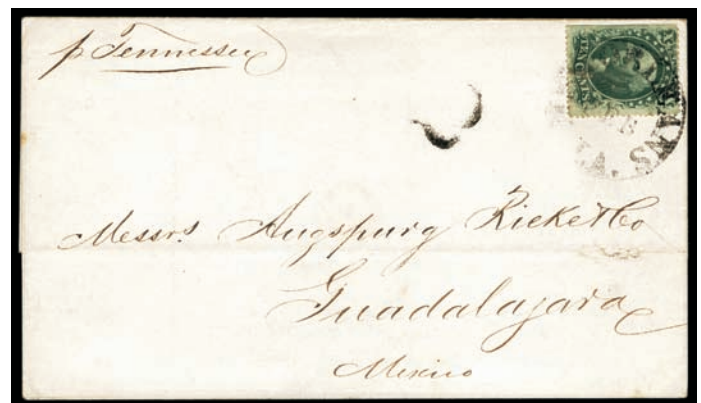 p Tennessee
Messrs. Augspurg Ricke & Co
Guadalajara
Mexico